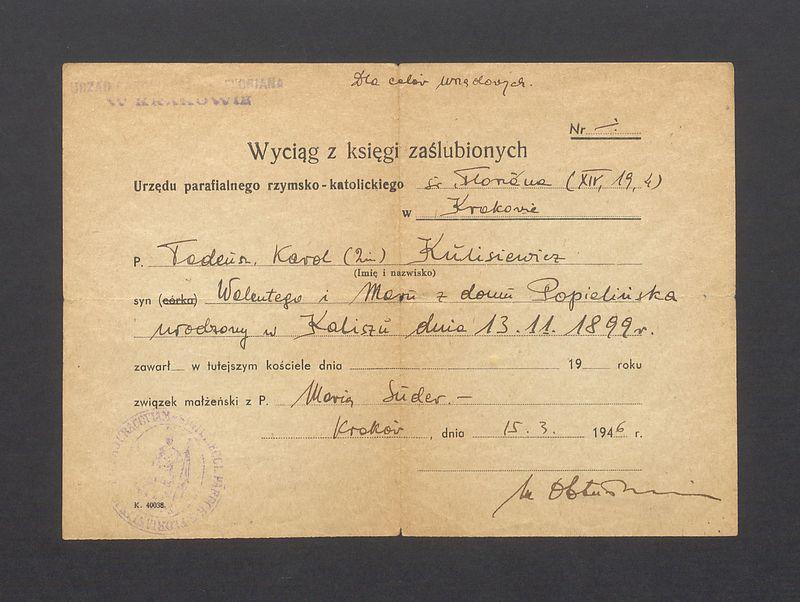 Dla celów urzędowych.
URZĄD FLORIANA
W KRAKOWIE
Nr
Wyciąg z księgi zaślubionych
Urzędu parafialnego rzymsko-katolickiego św. Floriana (XIV, 19, 4)
w Krakowie
P. Tadeusz, Karol (2im) Kulisiewicz
(Imię i nazwisko)
syn (córka) Walentego i Marii z domu Popielińska
urodzony w Kaliszu dnia 13.11.1899 r.
zawarł w tutejszym kościele dnia 19 roku
związek małżeński z P. Maria Suder.—
Kraków, dnia 15.3. 1946 r.
K. 40038.